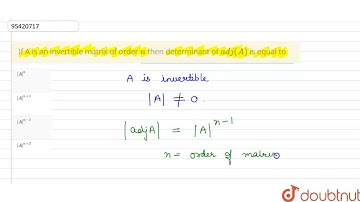 95420717
)If A is an invertible matrix of order n then determinant of adj(A) is equal to
|A|ⁿ
A is invertible
|A| ≠ 0.
|adjA| = |A|ⁿ⁻¹
n = order of matrix
doubtnut